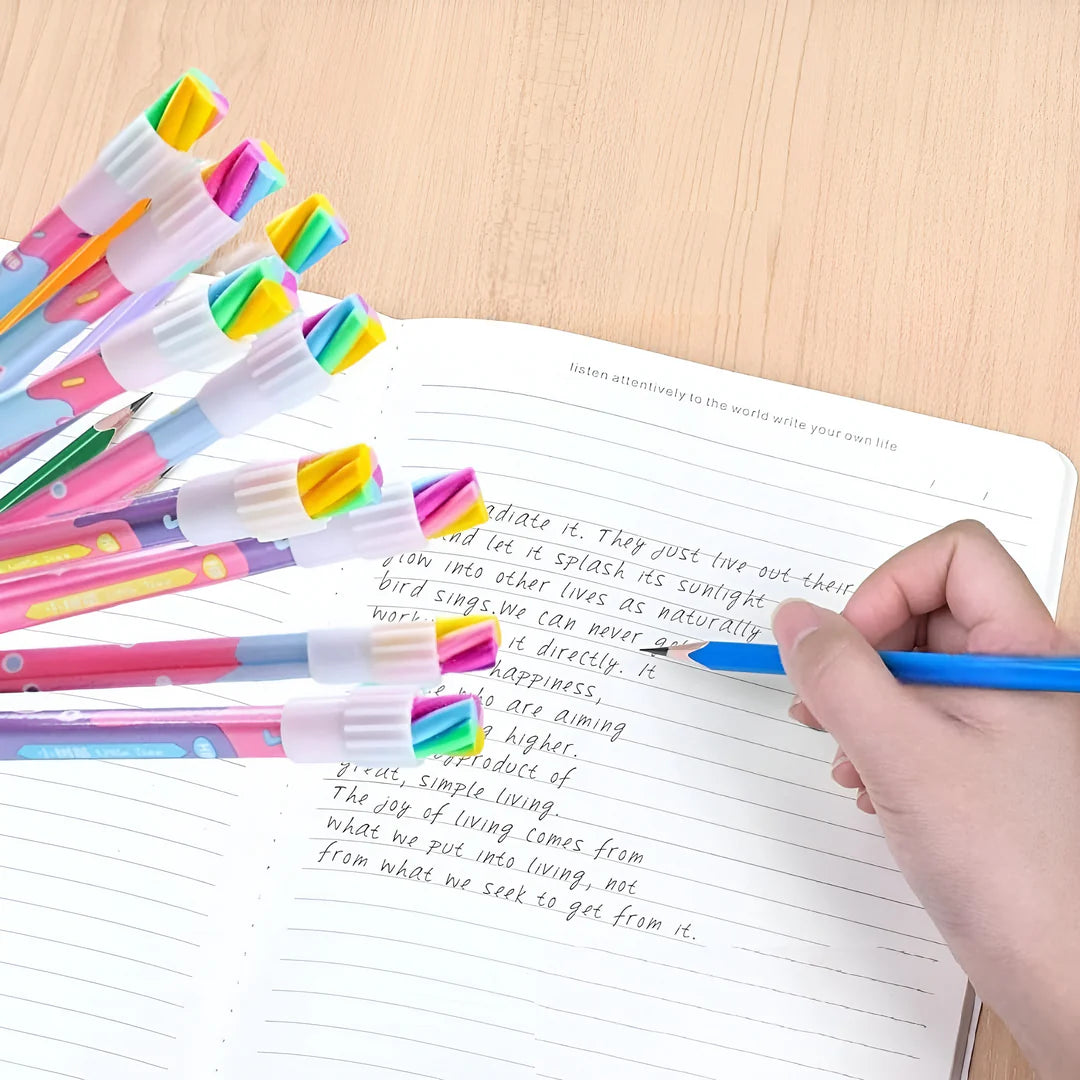 listen attentively to the world write your own life
adiate it. They just live out their
nd let it splash its sunlight
glow into other lives as naturally
bird sings. We can never get
work
it directly. It
happiness,
who are aiming
g higher.
product of
great, simple living.
The joy of living comes from
what we put into living, not
from what we seek to get from it.
Little Tree
小树苗 Little Tree